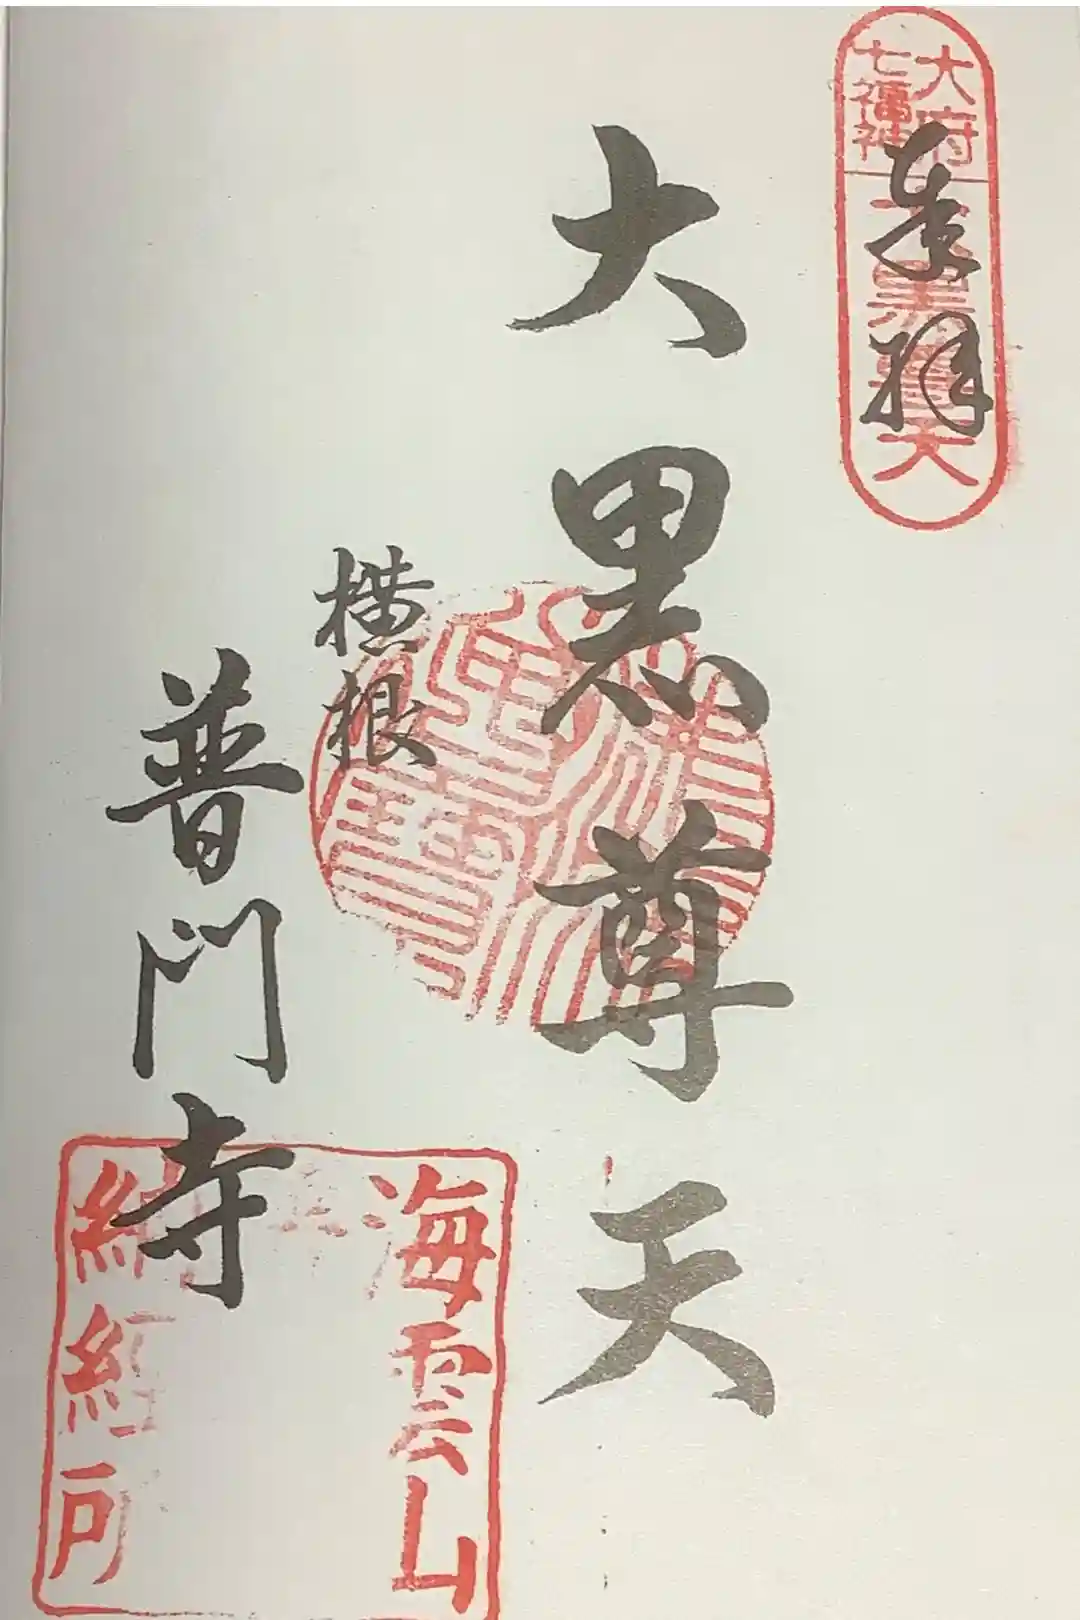 大府
七福神
大黒尊天
奉拝
大黒尊天
横根
普門寺
海雲山
納経印